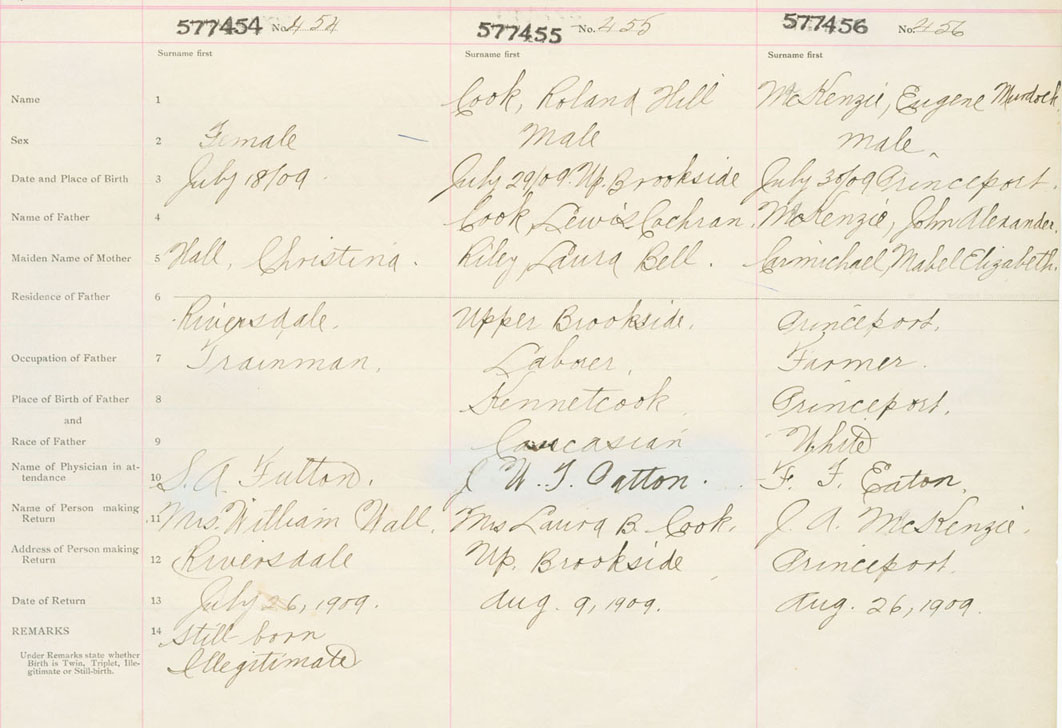 577454 No. 454 577455 No. 455 577456 No. 456
Surname first Surname first Surname first
Name 1 Cook, Roland Hill McKenzie, Eugene Murdock
Sex 2 Female Male male
Date and Place of Birth 3 July 18/09. July 29/09. Up. Brookside July 30/09 Princeport.
Name of Father 4 Cook, Lewis Cochran. McKenzie, John Alexander.
Maiden Name of Mother 5 Hall, Christina. Riley Laura Bell. Carmichael Mabel Elizabeth.
Residence of Father 6 Riversdale. Upper Brookside. Princeport.
Occupation of Father 7 Trainman. Laborer, Farmer.
Place of Birth of Father 8 Kennetcook Princeport.
and
Race of Father 9 Caucasian White
Name of Physician in at-
tendance 10 S. A. Fulton. J W. T. Patton. F. F. Eaton.
Name of Person making
Return 11 Mrs. William Hall. Mrs Laura B. Cook. J. A. McKenzie.
Address of Person making
Return 12 Riversdale Up. Brookside Princeport.
Date of Return 13 July 26, 1909. Aug. 9, 1909. Aug. 26, 1909.
REMARKS 14 Still born
Under Remarks state whether
Birth is Twin, Triplet, Ille-
gitimate or Still-birth.
Illegitimate